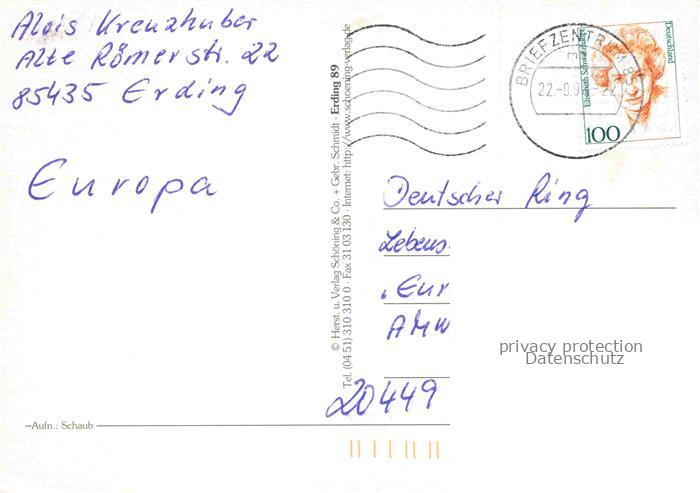 Alois Kreuzhuber
Alte Römerstr. 22
85435 Erding
Europa
© Herst. u. Verlag Schöning & Co. + Gebr. Schmidt · Erding 89
Tel. (04 51) 310 310 0 · Fax 31 03 130 · Internet: http://www.schoening-verlag.de
BRIEFZENTRUM 85
22.-9.9
Deutschland
Elisabeth Schwarzhaupt
100
Deutscher Ring
Lebens
"Eur
AMW
20449
privacy protection
Datenschutz
Aufn.: Schaub